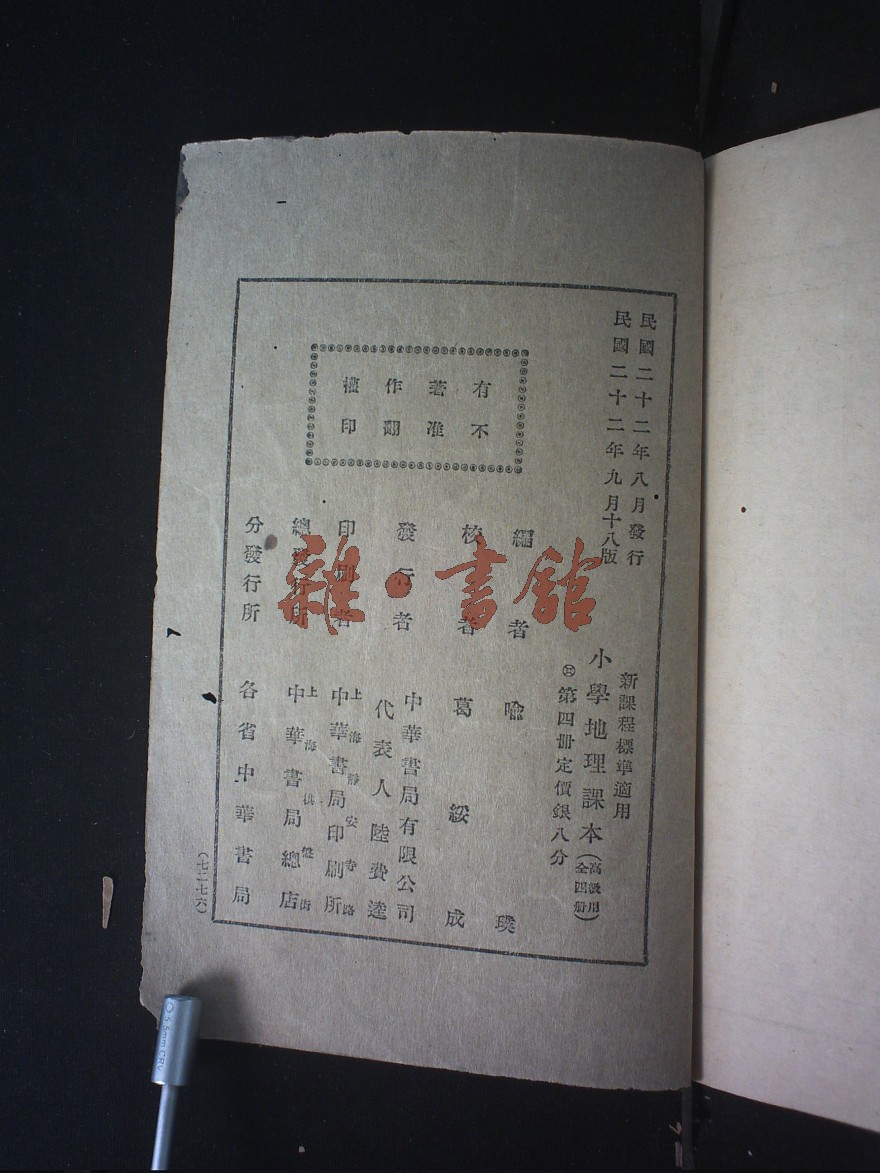 民國二十二年八月發行
民國二十二年九月十八版
新課程標準適用
小學地理課本(高級用 全四册)
第四册定價銀八分
有著作權
不准翻印
編者 喻璞
校者 葛綏成
發行者 中華書局有限公司
代表人 陸費逵
印刷者 上海靜安寺路
中華書局印刷所
總發行所 上海棋盤街
中華書局總店
分發行所 各省中華書局
(七二七六)
雜·書館
0.5mm CRV